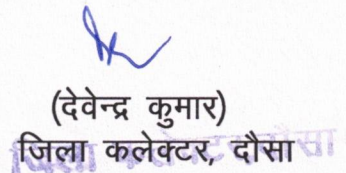 (देवेन्द्र कुमार)
जिला कलेक्टर, दौसा